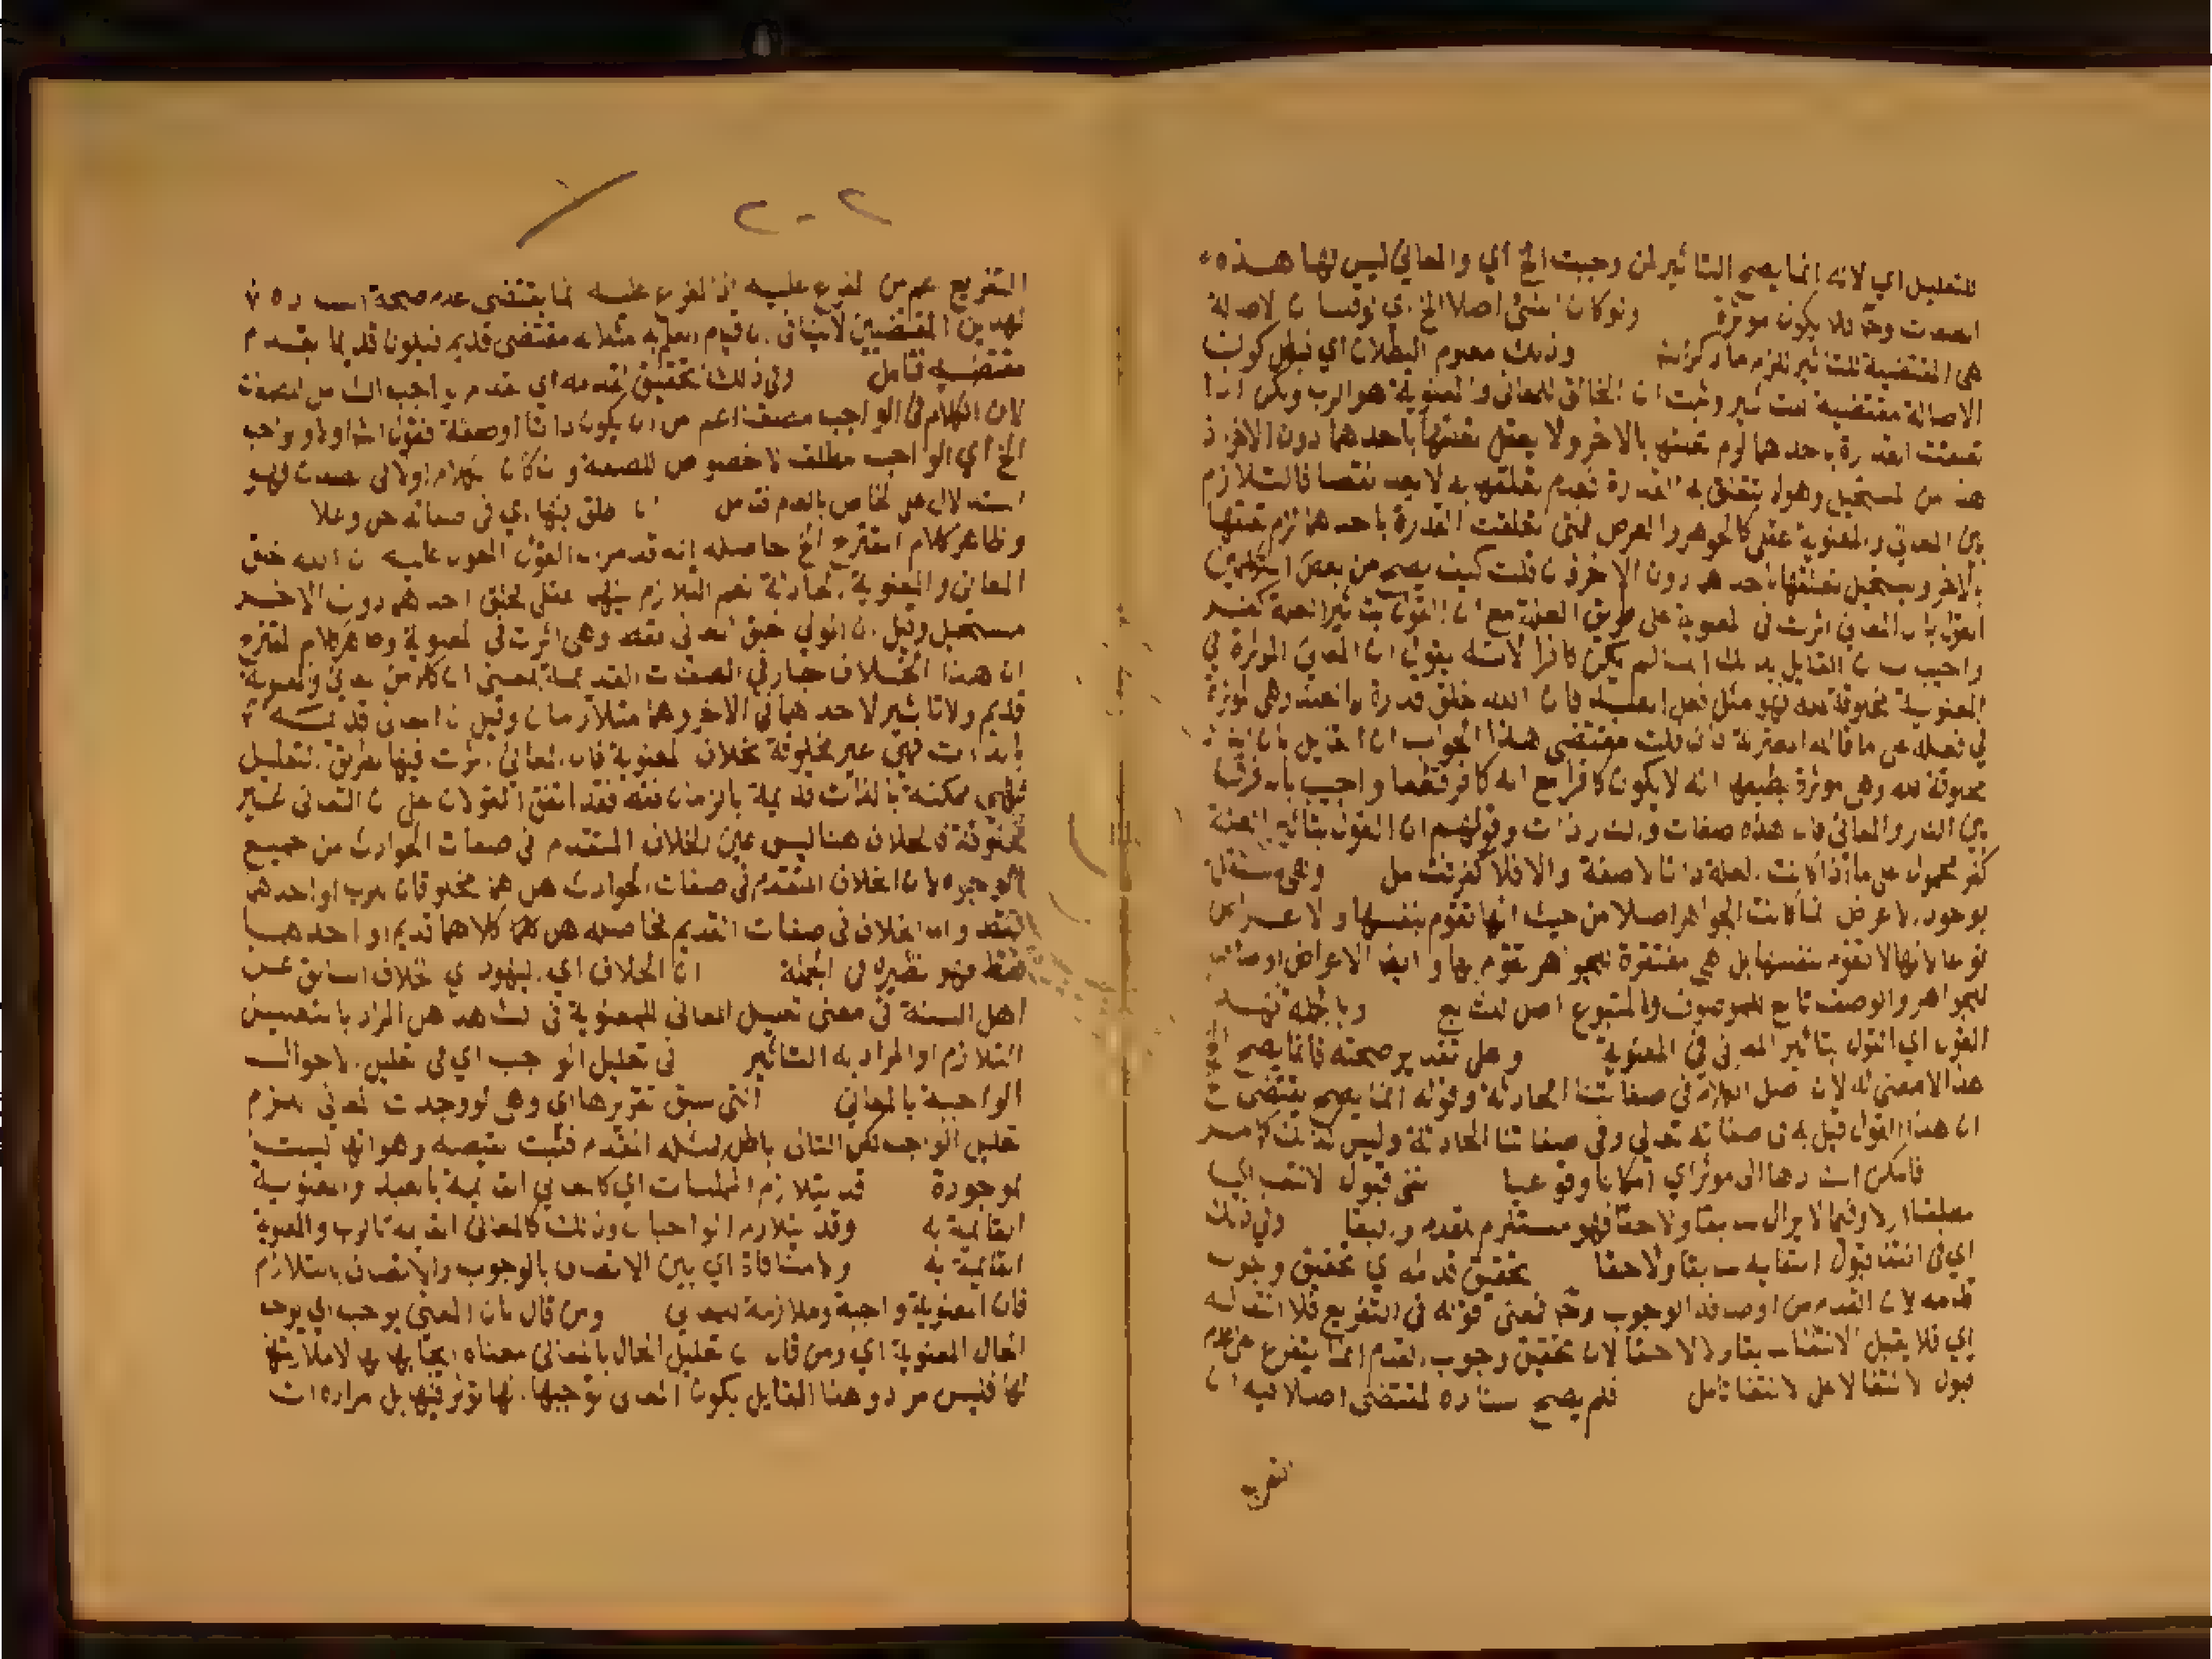 للتعليل اي لانه انما يصح التاثير لمن وجبت الخ اي والمعاني ليس لها هذه
الصفات وح فلا يكون موثرة ولو كان الشئ اصلا الخ اي لو قلنا ان الاصالة
هى المقتضية للتاثير للزم ما ذكرناه وذلك معلوم البطلان اي فبطل كون
الاصالة مقتضية للتاثير وثبت ان الخالق للمعانى والمعنوية هو الرب ولكن اذا
تعلقت القدرة باحدهما لزم تعلقها بالاخر ولا يعقل تعلقها باحدهما دون الاخر اذ
هذا من المستحيل وهو لا تتعلق به القدرة فعدم تعلقها به لا يعد نقصا فالتلازم
بين المعاني والمعنوية عقلي كالجوهر والعرض فمتى تعلقت القدرة باحدهما لزم تعلقها
بالاخر ويستحيل تعلقها باحدهما دون الاخر فان قلت كيف يصح من بعض المتكلمين
القول بان المعاني اثرت في المعنوية على طريق العلة مع ان القول بتاثير العلة كفر
واجيب بان القايل بذلك انما لم يكن كافرا لانه يقول ان المعاني الموثرة في
المعنوية مخلوقة لله فهو مثل فعل العبد فان الله خلق قدرة في العبد وهى موثرة
في فعله على ما قاله المعتزلة فان قلت مقتضى هذا الجواب ان القايل بان النار
مخلوقة لله وهى موثرة بطبعها انه لا يكون كافرا مع انه كافر قطعا واجيب بان فرقا
بين النار والمعاني فان هذه صفات والنار ذات وقولهم ان القول بتاثير العلة
كفر محمول على ما اذا كانت العلة ذاتا لا صفة والا فلا كفر فتامل وهى مستقلة
بوجود الاعراض لما كانت الجواهر اصلا من حيث انها تقوم بنفسها والاعراض
فرعا لانها لا تقوم بنفسها بل هي مفتقرة للجواهر تقوم بها وايضا الاعراض اوصاف
للجواهر والوصف تابع للموصوف والمتبوع اصل للتابع وبالجملة فهذا
القول اي القول بتاثير المعانى في المعنوية وعلى تقدير صحته فانما يصح الخ
هذا لا معنى له لان اصل الكلام في صفاتنا الحادثة وقوله انما يصح يقتضى ح
ان هذا القول قيل به في صفاته تعالى وفي صفاتنا الحادثة وليس كذلك
فامكن استنادها الى موثر اي امكانا وقوعيا نفى قبول الانتفاء اي
مطلقا ازلا وفيما لا يزال سابقا ولاحقا فهو مستلزم للقدم والبقا وفي ذلك
اي في انتفا قبول انتفايه سابقا ولاحقا تحقيق قدمه اي تحقيق وجوب
قدمه لان القدم من اوصاف الوجوب وح فمعنى قوله في التفريع فلا انتفا له
اي فلا يقبل الانتفا سابقا ولا لاحقا لان تحقيق وجوب القدم انما يتفرع على عدم
قبول الانتفا لا على الانتفا تامل فلم يصح استناده لمقتضى اصلا فيه ان
التفريع
٢-٢
التفريع اعم من المفرع عليه اذ المفرع عليه انما يقتضى عدم صحة استناده
لهذين المقتضيين لا ينافي ان قيام العلم به مثلا له مقتضى قديم فيكون قديما بقدم
مقتضيه تامل وفي ذلك تحقيق قدمه اي قدم الواجب الشامل للصفات
لان الكلام في الواجب مصدق اعم من ان يكون ذاتا او صفة فقول الش اولا وواجب
الخ اي الواجب مطلقا لا خصوص للصفة وان كان الكلام اولا في الصفات فهو
استدلال على الخاص بالعام فتامل اذا اطلق فيها اي في صفاته جل وعلا
وظاهر كلام المقترح الخ حاصله انه قد مر ان القول المعول عليه ان الله خلق
المعاني والمعنوية الحادثة نعم التلازم بينهما عقلي فخلق احدهما دون الاخر
مستحيل وقيل ان المولى خلق المعانى فقط وهى اثرت في المعنوية وظاهر كلام المقترح
ان هذا الخلاف جار في الصفات القديمة بمعنى ان كلا من المعاني والمعنوية
قديم ولا تاثير لاحدهما في الاخر وهما متلازمان وقيل ان المعانى قديمة
بالذات فهي غير مخلوقة بخلاف المعنوية فان المعاني اثرت فيها بطريق التعليل
فهي ممكنة بالذات قديمة بالزمان فقد اتفق القولان على ان المعانى غير
مخلوقة فالخلاف هنا ليس عين الخلاف المتقدم في صفات الحوادث من جميع
الوجوه لان الخلاف المتقدم في صفات الحوادث هل هما مخلوقان للرب او احدهما
فقط واما الخلاف في صفات القديم فحاصله هل هما كلاهما قديم او احدهما
فقط فهو نظيره في الجملة ان الخلاف اي المعهود اي الخلاف السابق عن
اهل السنة في معنى تعليل المعانى للمعنوية في الشاهد هل المراد بالتعليل
التلازم او المراد به التاثير في تعليل الواجب اي في تعليل الاحوال
الواجبة بالمعاني التي سبق تقريرها اي وهى لو وجدت المعاني للزم
تعليل الواجب لكن التالى باطل فمثله المقدم فثبت نقيضه وهو انها ليست
موجودة قد يتلازم الممكنات اي كالمعاني القايمة بالعبد والمعنوية
القايمة به وقد يتلازم الواجبان وذلك كالمعانى القايمة بالرب والمعنوية
القايمة به ولا منافاة اي بين الاتصاف بالوجوب والاتصاف بالتلازم
فان المعنوية واجبة وملازمة للمعاني ومن قال بان المعنى يوجب اي يوجب
الحال المعنوية اي ومن قال ان تعليل الحال بالمعانى معناه ايجابها لها لا ملازمتها
لها فليس مراد هذا القايل بكون المعانى توجبها انها توثر فيها بل مراده ان